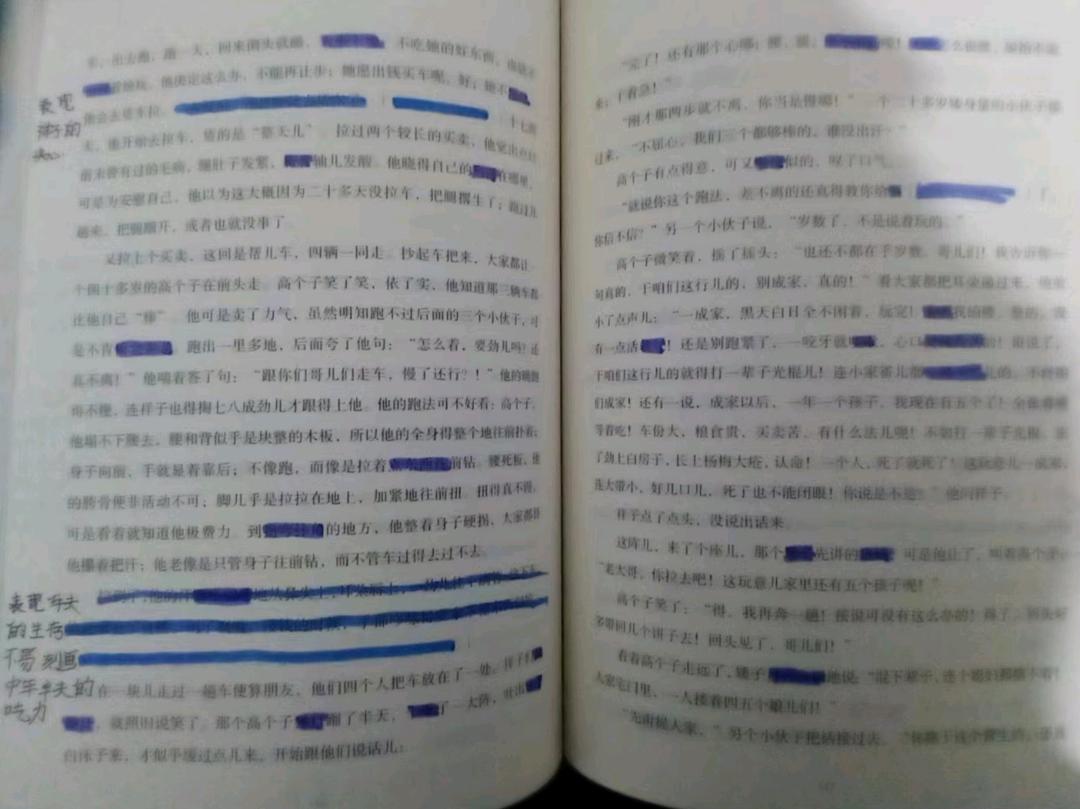 表现
祥子的
车，出去跑，跑一天，回来倒头就睡，不吃她的好东西，也
着她玩。他决定这么办，不能再让步；她愿出钱买车呢，好；她不
他会去赁车拉。十七
天，他开始去拉车，赁的是“整天儿”。拉过两个较长的买卖，他觉出点
前未曾有过的毛病，腿肚子发紧，轴儿发酸。他晓得自己的在哪里，
可是为安慰自己，他以为这大概因为二十多天没拉车，把腿撂生了；跑过几
趟来，把腿蹓开，或者也就没事了。
又拉上个买卖，这回是帮儿车，四辆一同走。抄起车把来，大家都让
个四十多岁的高个子在前头走。高个子笑了笑，依了实，他知道那三辆车都
比他自己“棒”。他可是卖了力气，虽然明知跑不过后面的三个小伙子，可
是不肯。跑出一里多地，后面夸了他句：“怎么着，要劲儿吗？还
真不离！”他喘着答了句：“跟你们哥儿们走车，慢了还行？！”他的确跑
得不慢，连祥子也得掏七八成劲儿才跟得上他。他的跑法可不好看：高个子，
他塌不下腰去，腰和背似乎是块整的木板，所以他的全身得整个地往前扑着；
身子向前，手就显着靠后；不像跑，而像是拉着前钻。腰死板，他
的胯骨便非活动不可；脚几乎是拉拉在地上，加紧地往前扭。扭得真不慢，
可是看着就知道他极费力。到的地方，他整着身子硬拐，大家都替
他攥着把汗；他老像是只管身子往前钻，而不管车过得去过不去。
表现车夫
的生存
不易 刻画
中年车夫的
吃力
在一块儿走过一趟车便算朋友，他们四个人把车放在了一处。祥子们
，就照旧说笑了。那个高个子蹓了半天，了一大阵，吐出
白沫子来，才似乎缓过点儿来，开始跟他们说话儿：
“完了！还有那个心哪；腰，腿，
来；干着急！”
“刚才那两步就不离，你当是慢哪！”一个二十多岁矮身量的小伙子接
过来，“不屈心，我们三个都够棒的，谁没出汗？”
高个子有点得意，可又似的，叹了口气。
“就说你这个跑法，差不离的还真得教你给了，
你信不信？”另一个小伙子说，“岁数了，不是说着玩的。”
高个子微笑着，摇了摇头：“也还不都在乎岁数，哥儿们！我告诉你一
句真的，干咱们这行儿的，别成家，真的！”看大家都把耳朵递过来，他放
小了点声儿：“一成家，黑天白日全不闲着，玩完！
有一点活！还是别跑紧了，一咬牙就，心口
干咱们这行儿的就得打一辈子光棍儿！连小家雀儿都
们成家！还有一说，成家以后，一年一个孩子，我现在有五个了！全张着嘴
等着吃！车份大，粮食贵，买卖苦，有什么法儿呢！不如打一辈子光棍，
了劲上白房子，长上杨梅大疮，认命！一个人，死了就死了！这玩意儿一成家，
连大带小，好几口儿，死了也不能闭眼！你说是不是？”他问祥子。
祥子点了点头，没说出话来。
这阵儿，来了个座儿，那个先讲的，可是他让了，叫着高个子：
“老大哥，你拉去吧！这玩意儿家里还有五个孩子呢！”
高个子笑了：“得，我再奔一趟！按说可没有这么办的！得了，回头好
多带回几个饼子去！回头见了，哥儿们！”
看着高个子走远了，矮子地说：“混下辈子，连个媳妇都摸不着！
人家宅门里，一人搂着四五个娘儿们！”
“先甭提人家，”另个小伙子把话接过去。